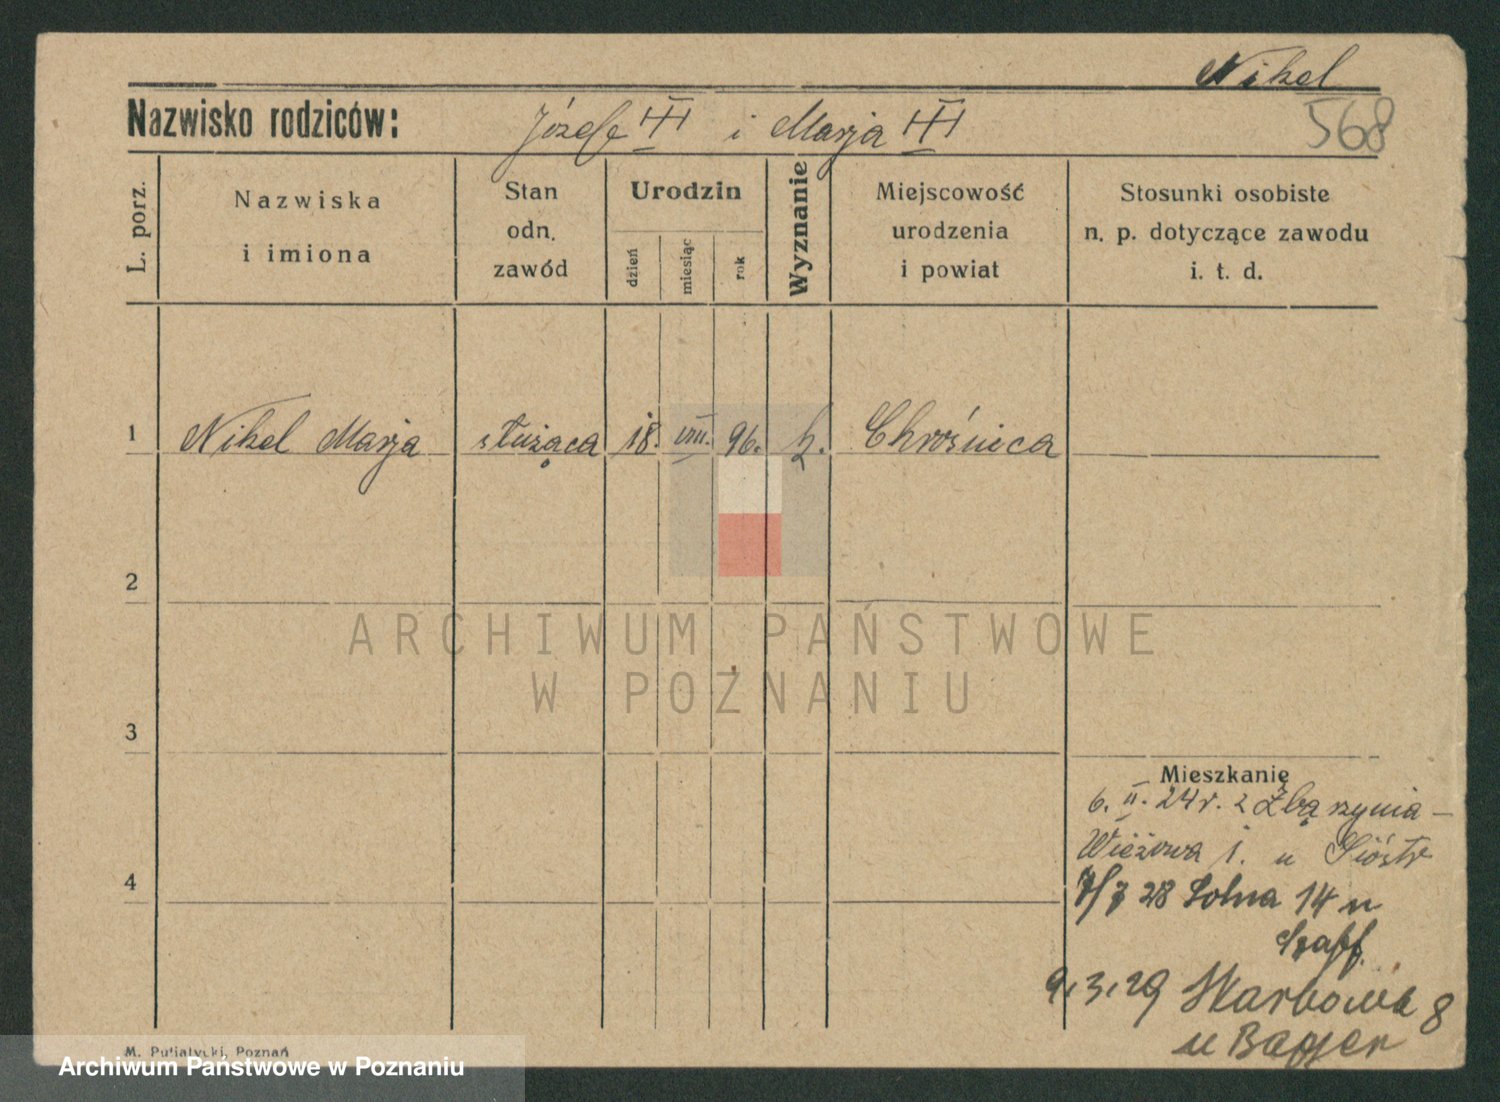 Nikel
568
Nazwisko rodziców: Józefa i Marja
L. porz.
Nazwiska i imiona
Stan odn. zawód
Urodzin
dzień
miesiąc
rok
Wyznanie
Miejscowość urodzenia i powiat
Stosunki osobiste n. p. dotyczące zawodu i. t. d.
1 Nikel Marja służąca 18. VIII. 96. Chrośnica
2
ARCHIWUM PAŃSTWOWE
W POZNANIU
3
Mieszkanie
6. II. 24 r. z Zbąszynia –
Wieżowa 1. u Sióstr
7/3 28 Solna 14 u
9.3.29 Skarbowa 8
u
4
M. Putiatycki, Poznań
Archiwum Państwowe w Poznaniu